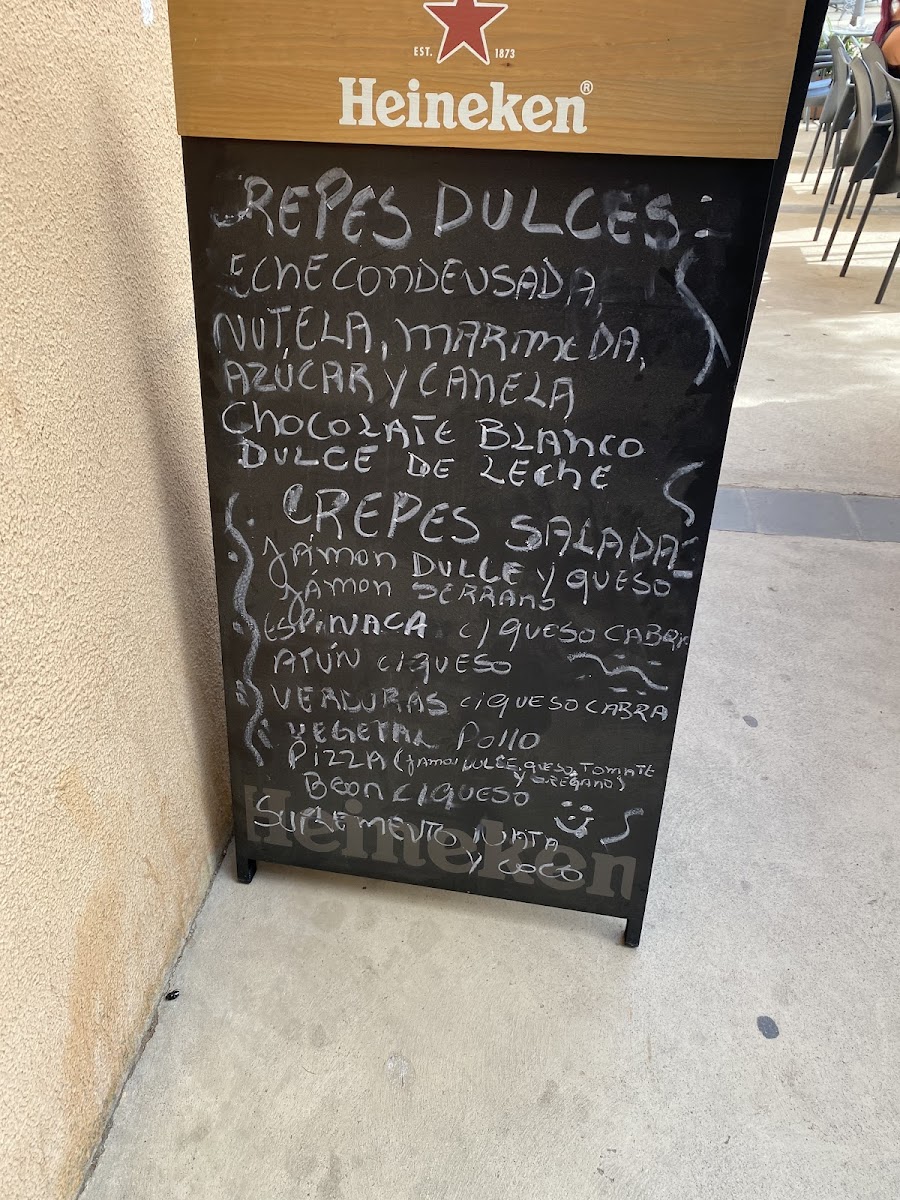 EST. 1873
Heineken®
CREPES DULCES:
LECHE CONDENSADA,
NUTELA, MARMEDA,
AZÚCAR Y CANELA
CHOCOLATE BLANCO
DULCE DE LECHE
CREPES SALADAS
JAMON DULCE Y QUESO
JAMON SERRANO
ESPINACA C/QUESO CABRA
ATÚN C/QUESO
VERDURAS C/QUESO CABRA
VEGETAL POLLO
PIZZA (JAMON DULCE, QUESO, TOMATE
Y OREGANO)
BCON C/QUESO
SUPLEMENTO NATA
Y COCO
Heineken